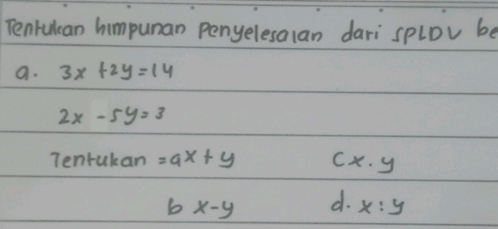 Tentukan himpunan Penyelesaian dari SPLDV be
a. 3x +2y=14
2x -5y=3
Tentukan =a x+y C x.y
b x-y d. x:y